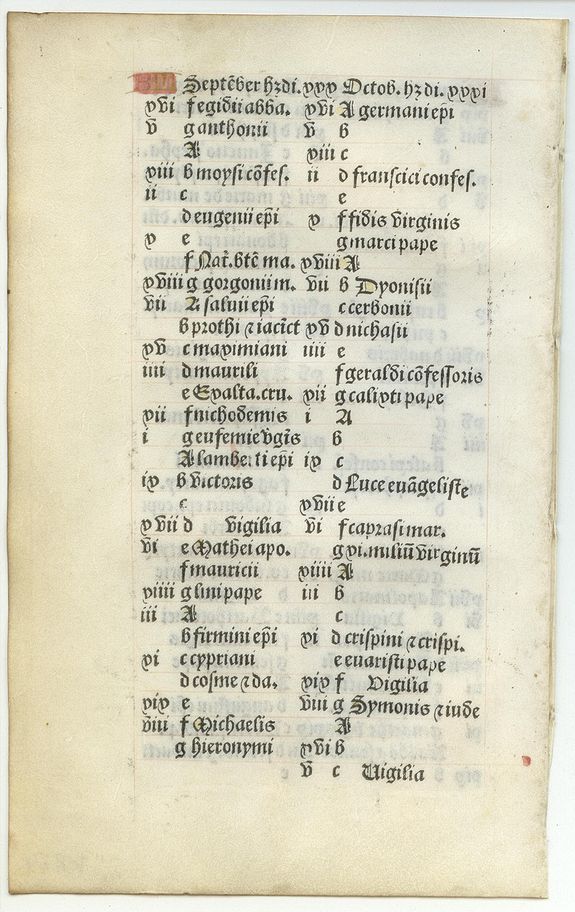 Septēber hȝ di. xxx Octob. hȝ di. xxxi
xvi f egidii abba. xvi A germani epi
v g anthonii v b
A viii c
viii b moysi cōfes. ii d francisci confes.
ii c e
d eugenii epi x f fidis virginis
x e g marci pape
f Nat. btē ma. xviii A
xviii g gorgonii m. vii b Dyonisii
vii A saluii epi c cerbonii
b prothi ⁊ iacict xv d nichasii
xv c maximiani iiii e
iiii d maurili f geraldi cōfessoris
e Exalta. cru. xii g calixti pape
xii f nichodemis i A
i g eufemie vgīs b
A lamberti epi ix c
ix b victoris d Luce euāgeliste
c xvii e
xvii d vigilia vi f caprasi mar.
vi e Mathei apo. g xi. miliū virginū
f mauricii xiiii A
xiiii g lini pape iii b
iii A c
b firmini epi xi d crispini ⁊ crispi.
xi c cypriani e euaristi pape
d cosme ⁊ da. xix f Vigilia
xix e viii g Symonis ⁊ iude
viii f Michaelis A
g hieronymi xvi b
v c Uigilia